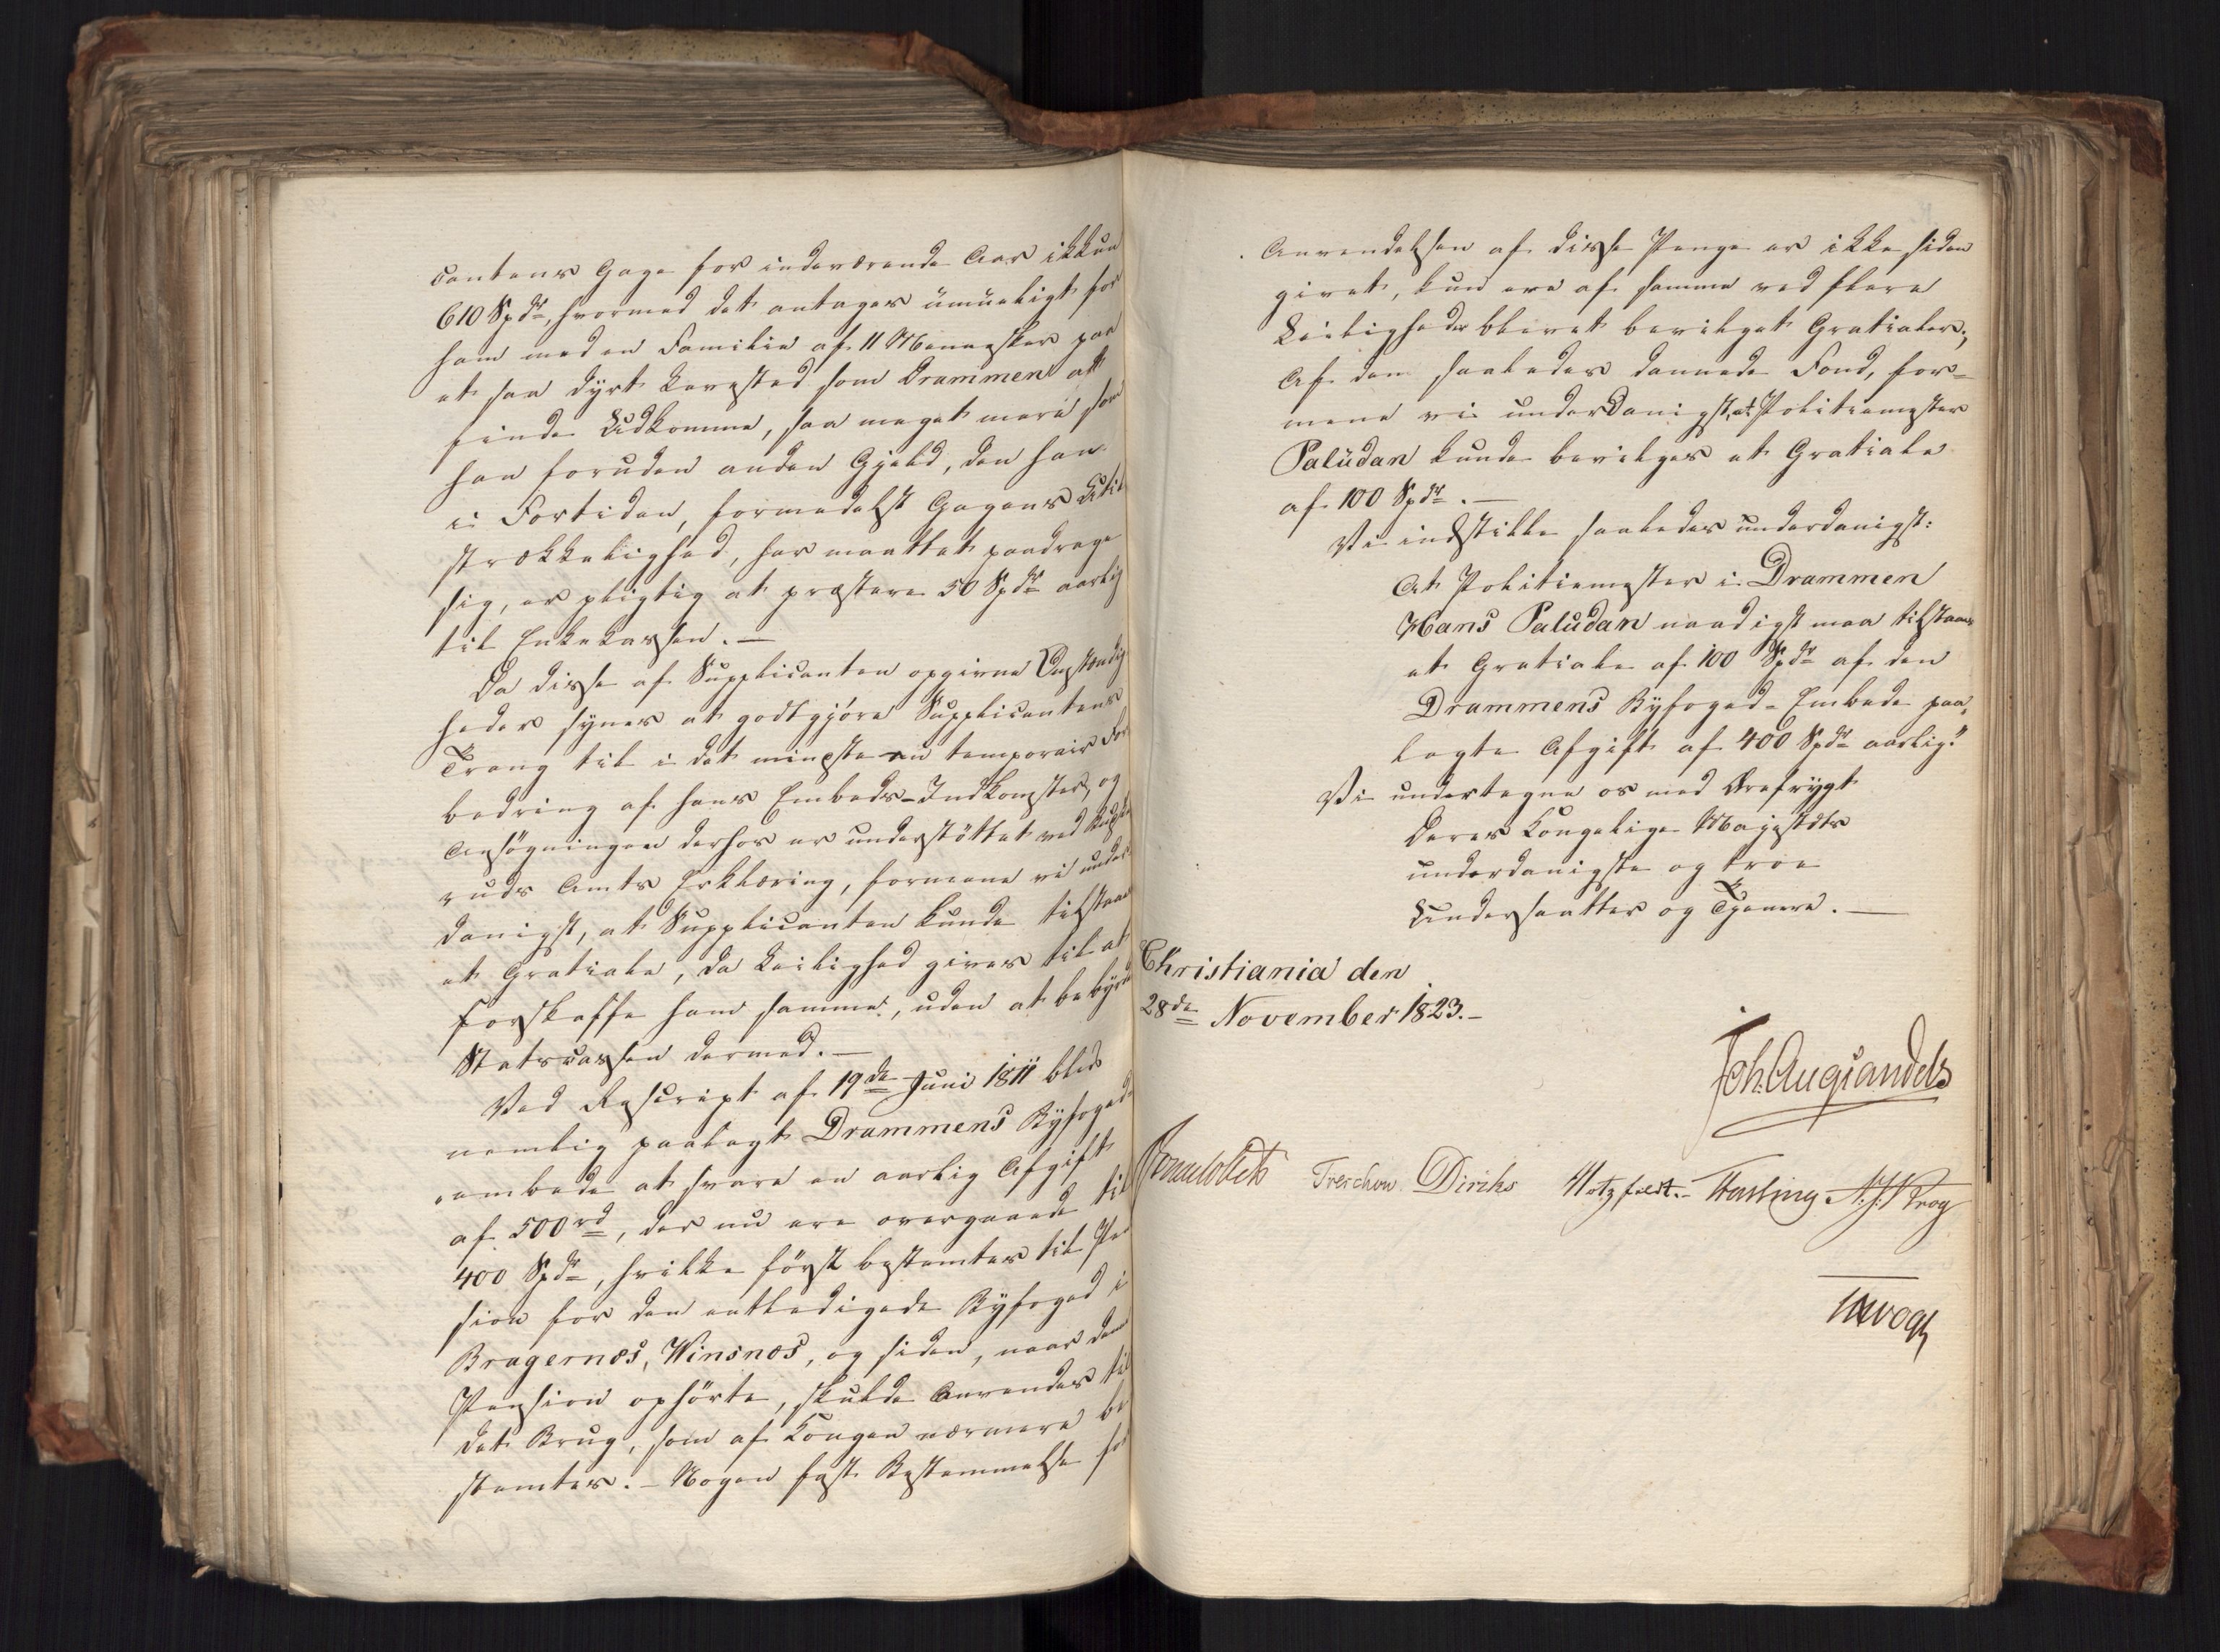 cantens Gage for indeværende Aar ikkun
610 Spdr, hvormed det antages umueligt for
ham med en Familie af 11 Mennesker paa
et saa dyrt Levested som Drammen at
finde Udkomme, saa meget mere som
han foruden anden Gjeld, den han
i Fortiden, formedelst Gagens Util
strækkelighed, har maattet paadrage
sig, er pligtig at præstere 50 Spdr aarlig
til Enkekassen. —
Da disse af Supplicanten opgivne Omstændig
heder synes at godtgjøre Supplicantens
Trang til i det mindste en temporair For
bedring af hans Embeds-Indkomster, og
Ansøgningen derhos er understøttet ved Buske
ruds Amts Erklæring, formene vi under
danigst, at Supplicanten kunde tilstaaes
et Gratiale, da Leilighed gives til at
forskaffe ham samme, uden at bebyrde
Statscassen dermed. —
Ved Rescript af 19de Juni 1811 blev
nemlig paalagt Drammens Byfoged-
embede at svare en aarlig Afgift
af 500 rd, der nu ere overgaaede til
400 Spdr, hvilke først bestemtes til Pen
sion for den entledigede Byfoged i
Bragernæs, Winsnæs, og siden, naar den
Pension ophørte, skulde anvendes til
det Brug, som af Kongen nærmere be
stemtes. – Nogen fast Bestemmelse for
Anvendelsen af disse Penge er ikke siden
givet, kun ere af samme ved flere
Leiligheder blevet bevilget Gratialer;
Af den saaledes dannede Fond, for=
mene vi underdanigst, at Politiemester
Paludan kunde bevilges et Gratiale
af 100 Spdr. —
Vi indstille saaledes underdanigst:
At Politiemester i Drammen
Hans Paludan naadigst maa tilstaaes
et Gratiale af 100 Spdr af den
Drammens Byfoged-Embede paa,
lagte Afgift af 400 Spdr aarlig."
Vi undertegne os med Ærefrygt
Deres Kongelige Majestæts
underdanigste og troe
Undersaatter og Tjenere. —
Christiania den
28de November 1823. –
Joh. Aug. Sandels
Sommerhielm Treschow. Diriks Motzfeldt. – Fasting N. J. Krog
JHVogt